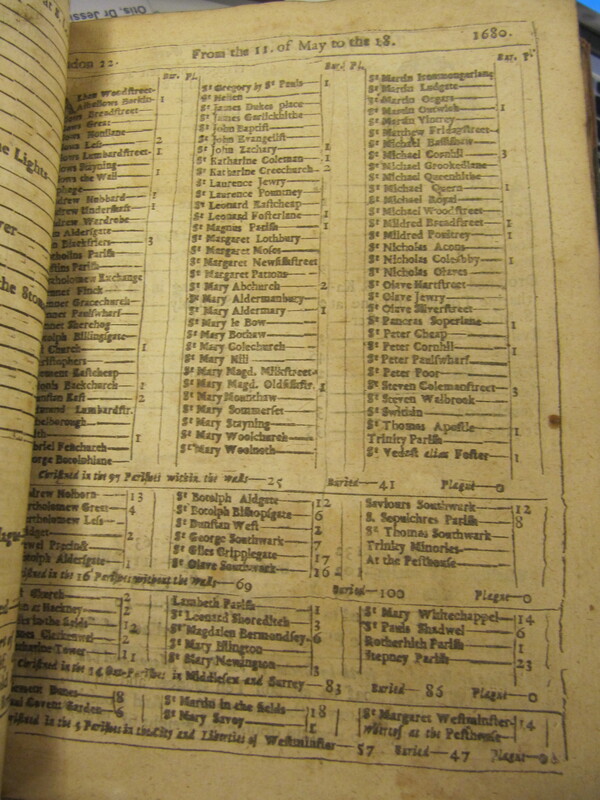 ondon 22. From the 11. of May to the 18. 1680.
Bur. Pl.
Woodstreet
Alhallows Barkin- 1
lows Breadstreet
lows Great
lows Honilane
lows Less 2
lows Lombardstreet- 1
lows Stayning
lows the Wall 1
drew Hubbard 1
drew Undershaft 1
drew Wardrobe
Aldersgate
Blackfriers 3
Parish
Parish
tholomew Exchange
nnet Finch
nnet Gracechurch
nnet Paulswharf
nnet Sherehog
tolph Billingsgate
Church 1
hristophers
ement Eastcheap
Backchurch 1
nstan East 2
mund Lambardstr.
helborough
1
briel Fenchurch
orge Botolphlane
Bur. Pl.
St Gregory by St Pauls 1
St Hellen
St James Dukes place
St James Garlickhithe
St John Baptist
St John Evangelist
St John Zachary 1
St Katharine Coleman 1
St Katharine Creechurch 2
St Laurence Jewry
St Laurence Pountney
St Leonard Eastcheap
St Leonard Fosterlane 1
St Magnus Parish 1
St Margaret Lothbury
St Margaret Moses
St Margaret Newfishstreet
St Margaret Pattons
St Mary Abchurch 2
St Mary Aldermanbury
St Mary Aldermary 1
St Mary le Bow
St Mary Bothaw
St Mary Colechurch
St Mary Hill
St Mary Magd. Milkstreet
St Mary Magd. Oldfishstr. 1
St Mary Mounthaw
St Mary Sommerset
St Mary Stayning
St Mary Woolchurch
St Mary Woolnoth
Bur. Pl.
St Martin Ironmongerlane
St Martin Ludgate
St Martin Orgars
St Martin Outwich 1
St Martin Vintrey
St Matthew Fridaystreet
St Michael Bassishaw
St Michael Cornhil 3
St Michael Crookedlane
St Michael Queenhithe
St Michael Quern 1
St Michael Royal
St Michael Woodstreet
St Mildred Breadstreet 1
St Mildred Poultrey 1
St Nicholas Acons
St Nicholas Coleabby 1
St Nicholas Olaves
St Olave Hartstreet
St Olave Jewry
St Olave Silverstreet
St Pancras Soperlane 1
St Peter Cheap
St Peter Cornhil 1
St Peter Paulswharf
St Peter Poor
St Steven Colemanstreet 3
St Steven Walbrook
St Swithin
St Thomas Apostle 1
Trinity Parish
St Vedast alias Foster 1
Christned in the 97 Parishes within the walls 25 Buried 41 Plague 0
drew Holborn 13
rtholomew Great 4
rtholomew Less
ridget 2
Precinct
tolph Aldersgate 1
St Botolph Aldgate 12
St Botolph Bishopsgate 6
St Dunstan West 2
St George Southwark 7
St Giles Cripplegate 17
St Olave Southwark 16
Saviours Southwark 12
S. Sepulchres Parish 8
St Thomas Southwark
Trinity Minories
At the Pesthouse
tned in the 16 Parishes without the Walls 69 Buried 100 Plague 0
Church 2
at Hackney 2
les in the fields 12
mes Clerkenwel 2
tharine Tower 11
Lambeth Parish 1
St Leonard Shoreditch 3
St Magdalen Bermondsey 6
St Mary Islington
St Mary Newington 3
St Mary Whitechappel 14
St Pauls Shadwel 6
Rotherhith Parish 1
Stepney Parish 23
Christned in the 14 Out-Parishes in Middlesex and Surrey 83 Buried 86 Plague 0
ement Danes 8
aul Covent Garden 6
St Martin in the fields 18
St Mary Savoy 1
St Margaret Westminster 14
whereof at the Pesthouse
ristned in the 5 Parishes in the City and Liberties of Westminster 57 Buried 47 Plague 0
he Light-
ver-
he Stone
Otis, Dr Jessi